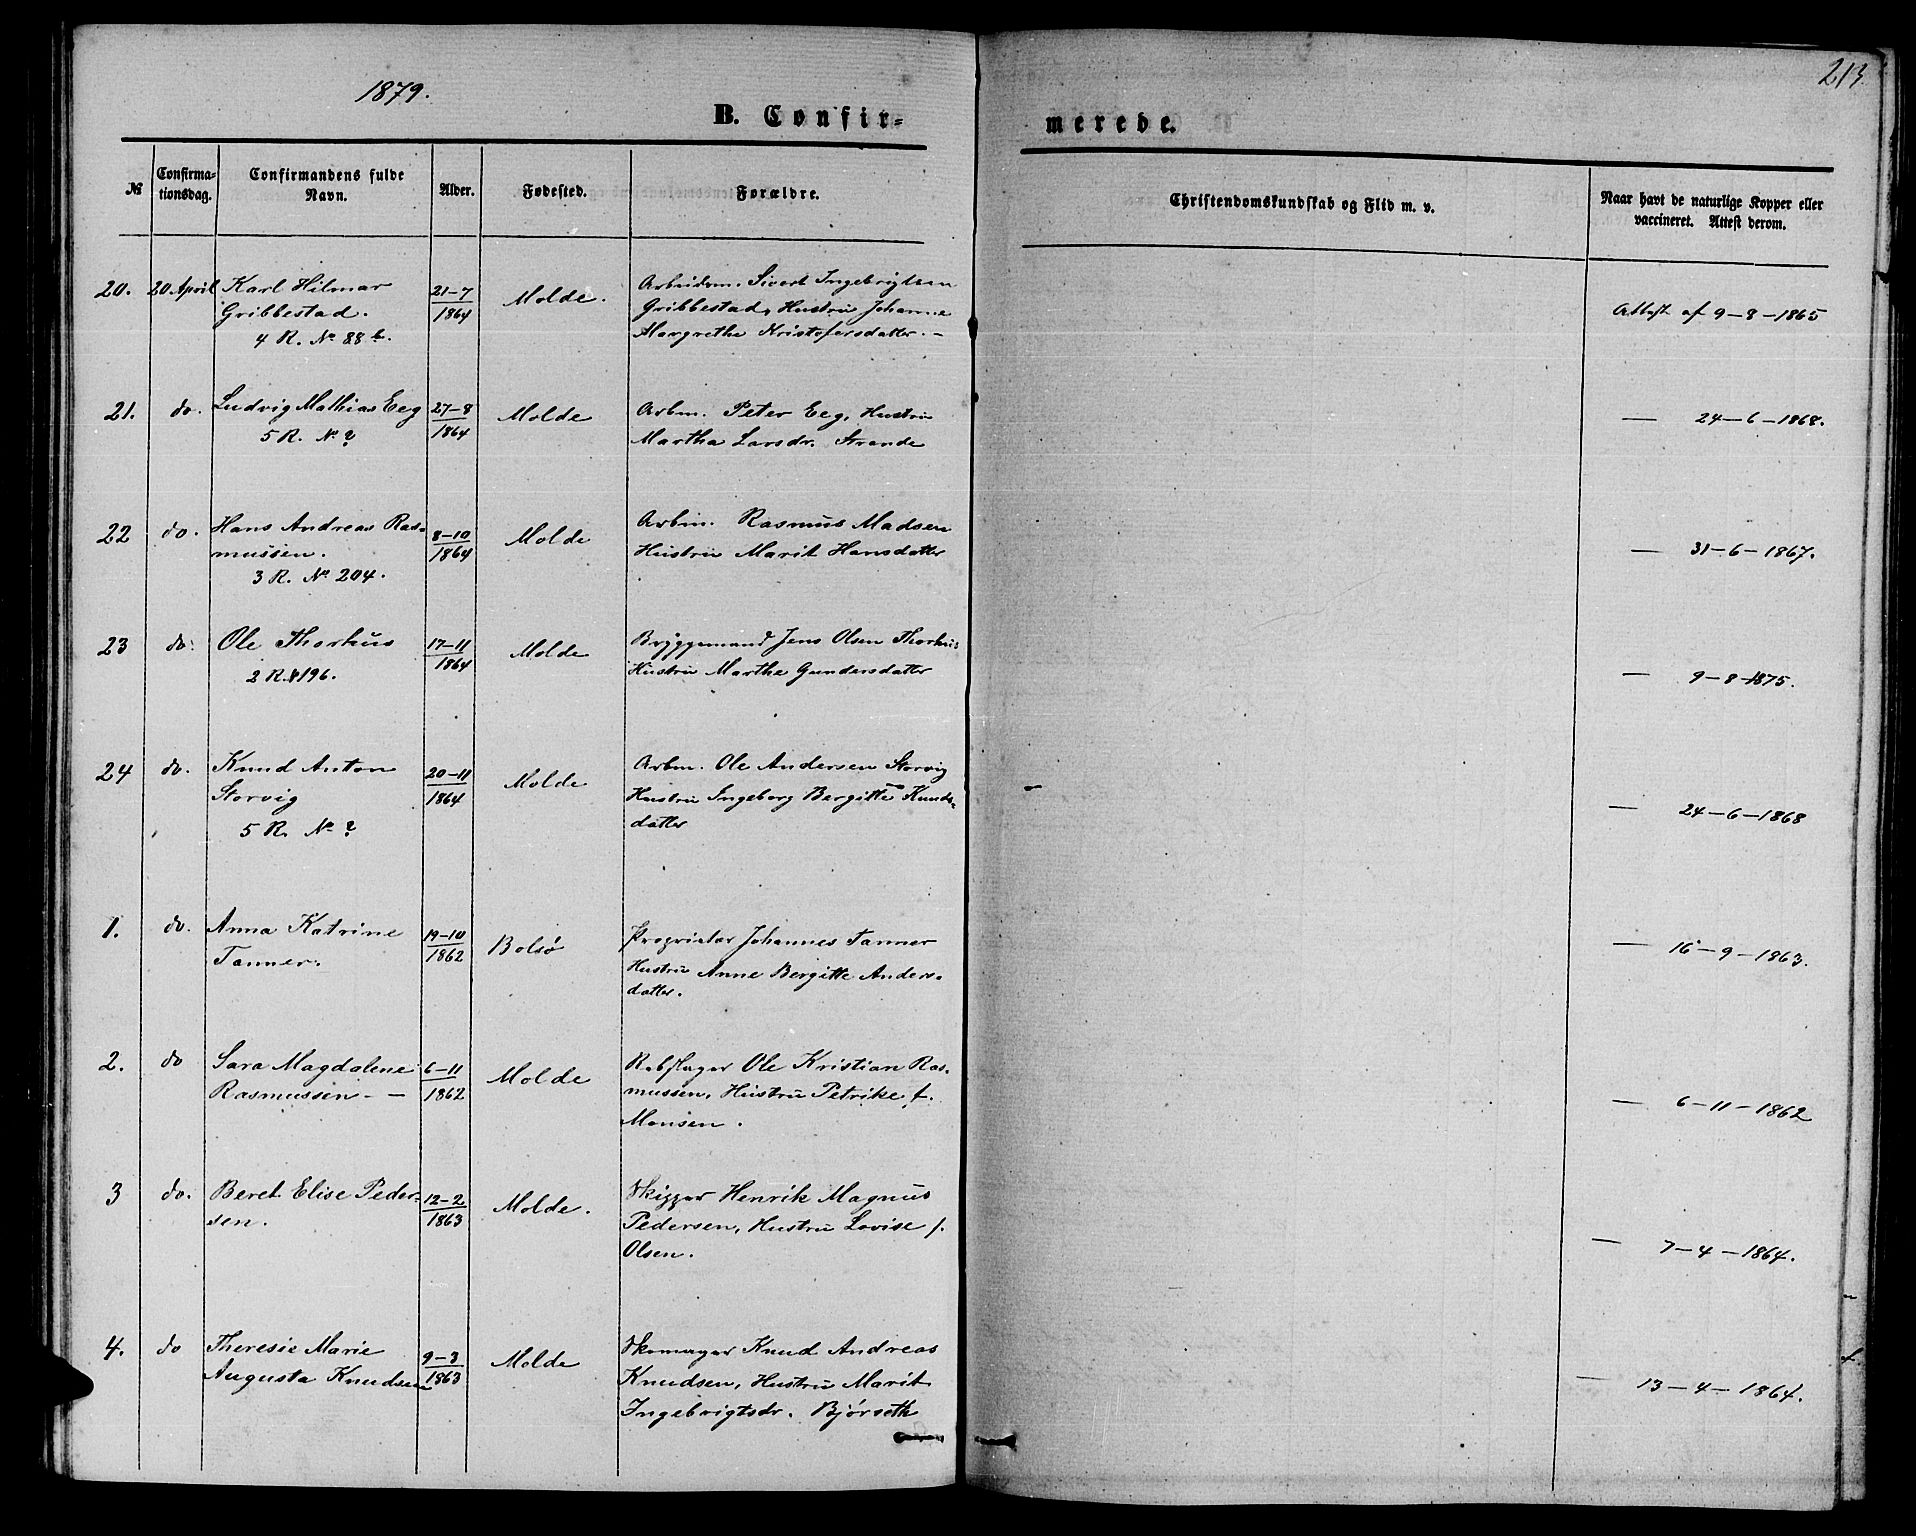 1879.
213
B. Confir-
merede.
№
Confirma-
tionsdag.
Confirmandens fulde
Navn.
Alder.
Fødested.
Forældre.
Christendomskundskab og Flid m. v.
Naar havt de naturlige Kopper eller
vaccineret. Attest derom.
20. 20 April Karl Hilmar 21-7 Molde. Arbeidsm. Sivert Ingebrigtsen
Gribbestad. 1864 Gribbestad, Hustru Johanne Attest af 9-8-1865
4 R. No 88 b. Margrethe Kristofersdatter.-
21. do. Ludvig Mathias Eeg 27-8 Molde Arbm. Peter Eeg, Hustru — 24-6-1868.
5 R. No ? 1864 Martha Larsdr. Strande
22 do. Hans Andreas Ras- 8-10 Molde Arbm. Rasmus Madsen
mussen. 1864 Hustru Marit Hansdatter — 31-6-1867.
3 R. No 204.
23 do. Ole Thorhus 17-11 Molde Bryggemand Jens Olsen Thorhus
2 R. # 196. 1864 Hustru Marthe Gundersdatter — 9-8-1875.
24 do. Knud Anton 20-11 Molde Arbm. Ole Andersen Storvig
Storvig 1864 Hustru Ingeborg Bergitte Knuds- — 24-6-1868
5 R. No ? datter
1. do. Anna Katrine 19-10 Bolsø Proprietær Johannes Tanner
Tanner. 1862 Hustru Anne Bergitte Anders- — 16-9-1863.
datter.
2. do Sara Magdalene 6-11 Molde Rebslager Ole Kristian Ras-
Rasmussen - — 1862 mussen, Hustru Petrike f. — 6-11-1862
Monsen.
3 do. Beret Elise Peder- 12-2 Molde. Skipper Henrik Magnus
sen. 1863 Pedersen, Hustru Lovise f.
Olsen. — 7-4-1864.
4. do Theresie Marie 9-3 Molde Skomager Knud Andreas
Augusta Knudsen 1863 Knudsen, Hustru Marit — 13-4-1864.
Ingebrigtsdr. Bjørseth